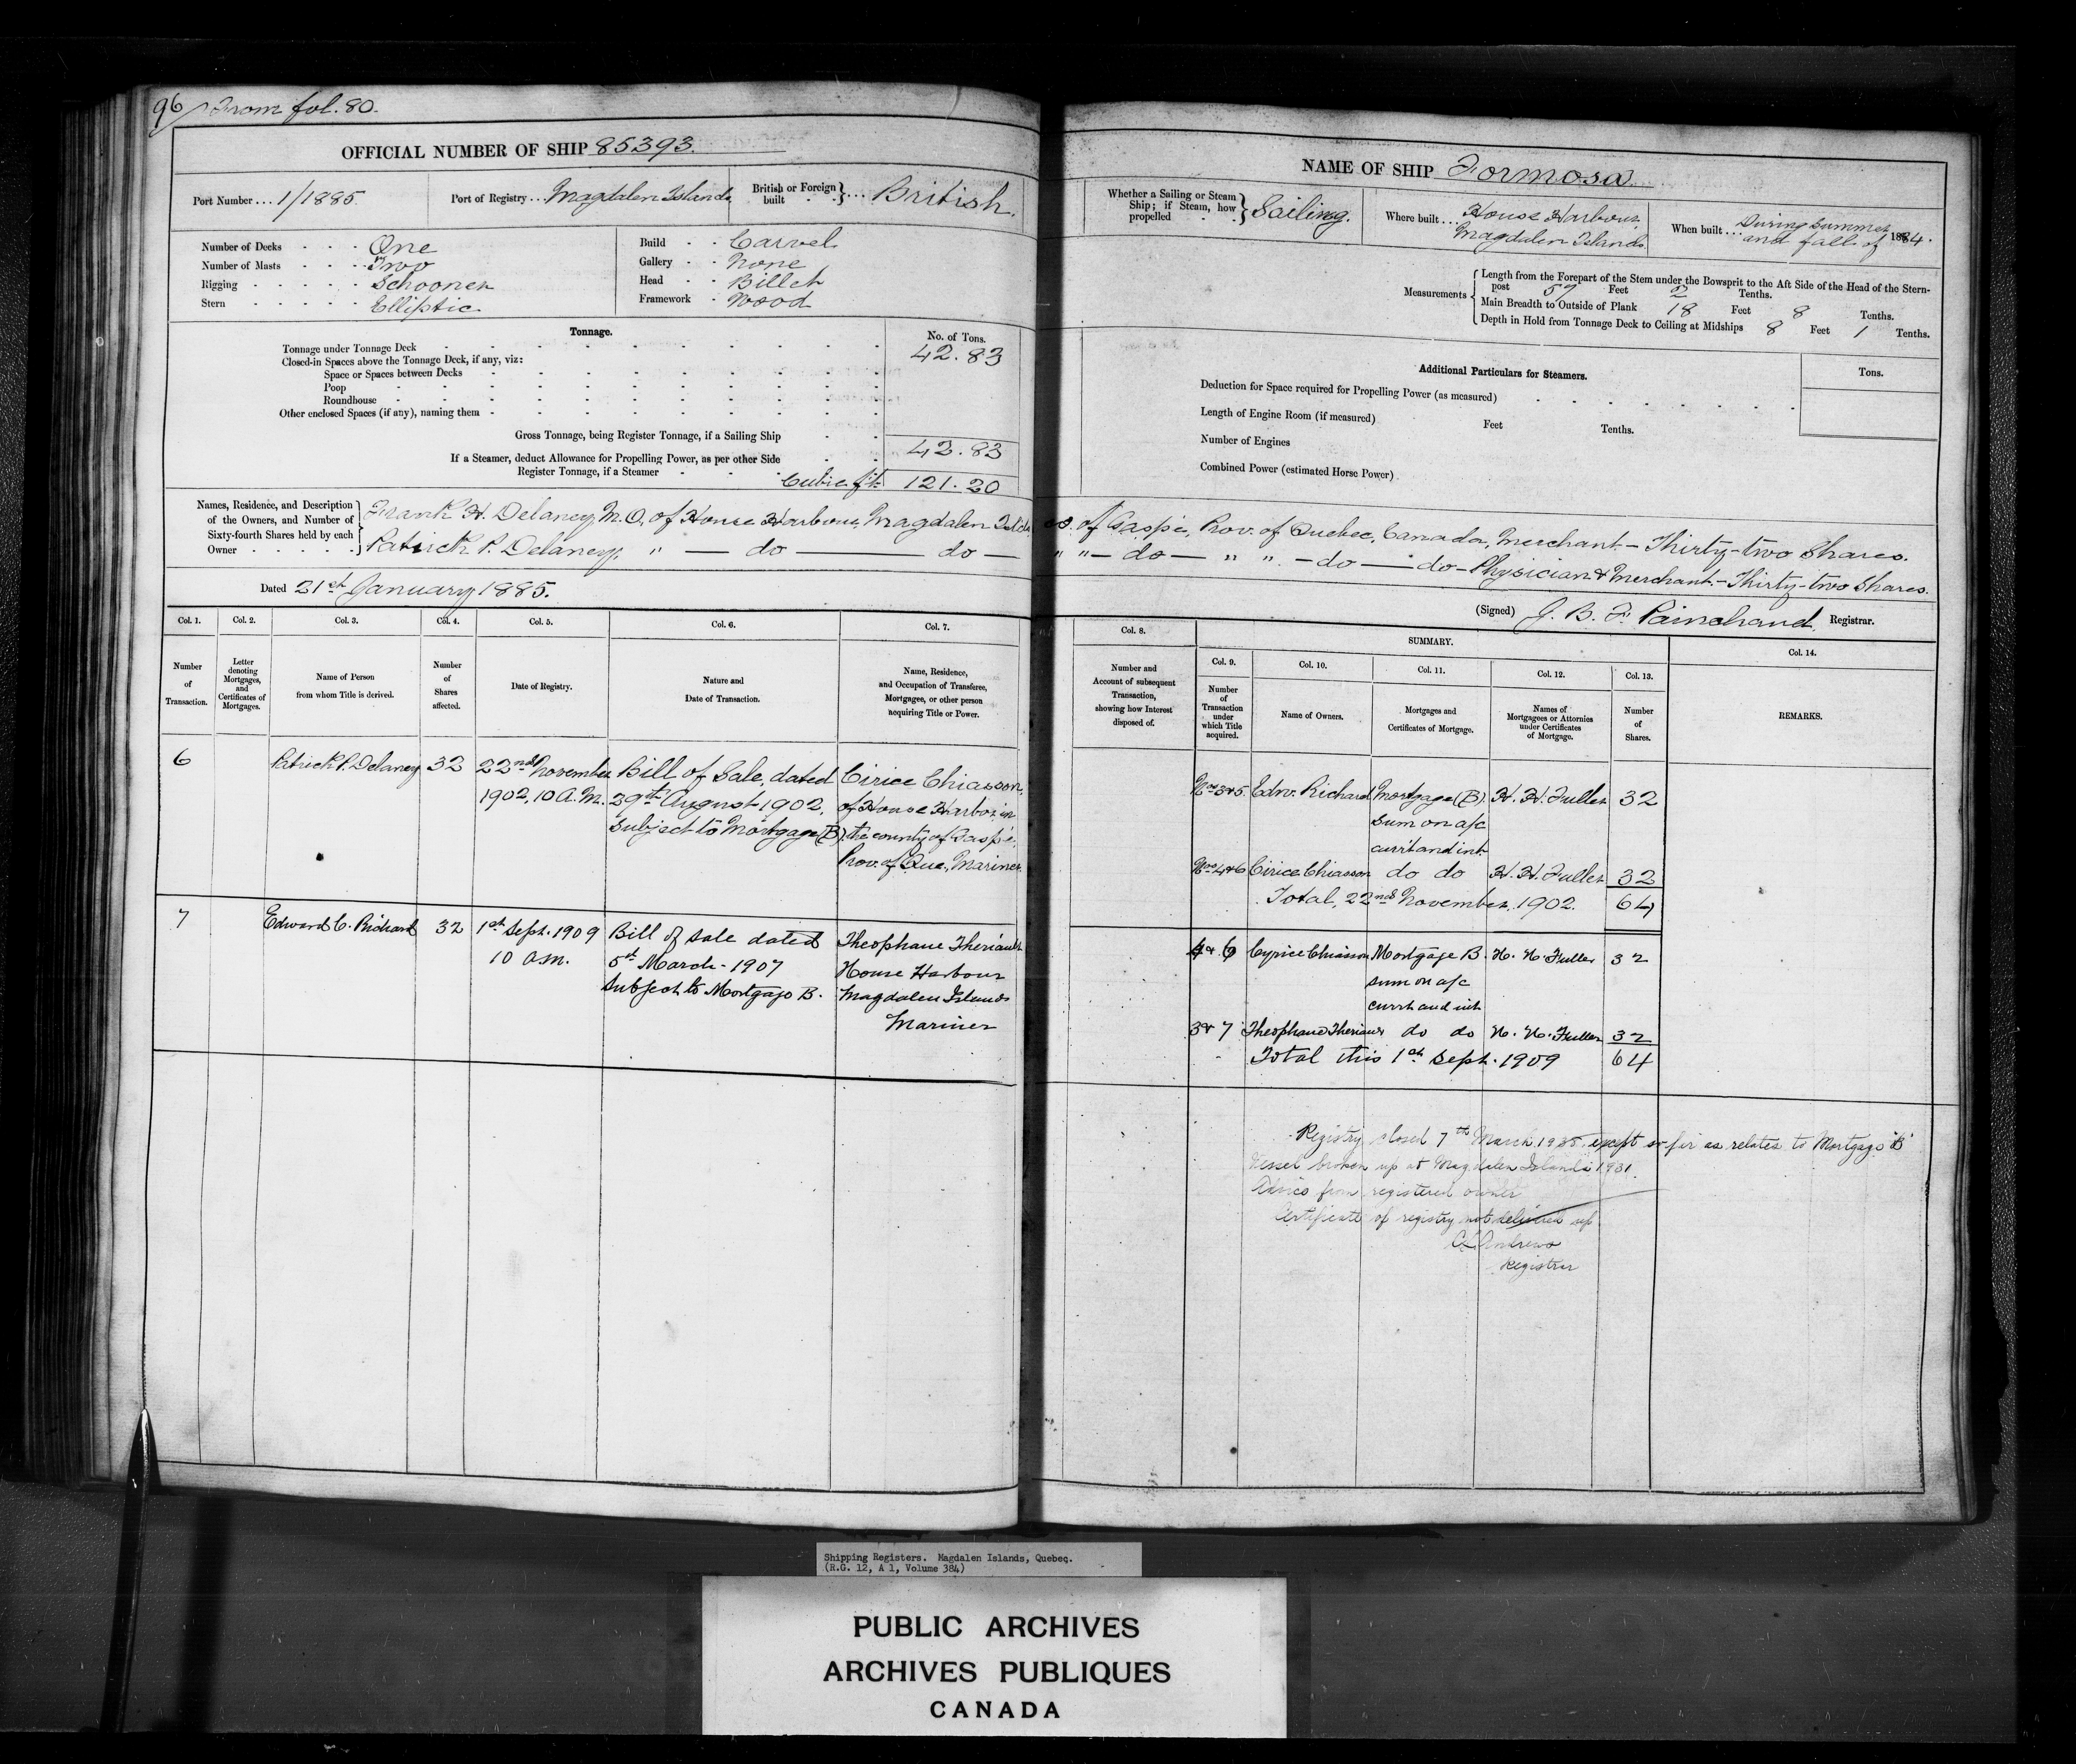 96 / From fol. 80.
OFFICIAL NUMBER OF SHIP 85393.
Port Number ... 1/1885
Port of Registry ... Magdalen Islands
British or Foreign built } ... British.
Number of Decks One
Number of Masts Two
Rigging Schooner
Stern Elliptic
Build Carvel
Gallery None
Head Billet
Framework Wood
Tonnage.
No. of Tons.
Tonnage under Tonnage Deck 42.83
Closed-in Spaces above the Tonnage Deck, if any, viz:
Space or Spaces between Decks
Poop
Roundhouse
Other enclosed Spaces (if any), naming them
Gross Tonnage, being Register Tonnage, if a Sailing Ship 42.83
If a Steamer, deduct Allowance for Propelling Power, as per other Side
Register Tonnage, if a Steamer
Cubic ft. 121.20
NAME OF SHIP Formosa
Whether a Sailing or Steam Ship; if Steam, how propelled } Sailing.
Where built ... House Harbour Magdalen Islands
When built ... During Summer and fall of 1884.
Measurements
Length from the Forepart of the Stem under the Bowsprit to the Aft Side of the Head of the Stern-
post 57 Feet 2 Tenths.
Main Breadth to Outside of Plank 18 Feet 8 Tenths.
Depth in Hold from Tonnage Deck to Ceiling at Midships 8 Feet 1 Tenths.
Additional Particulars for Steamers.
Tons.
Deduction for Space required for Propelling Power (as measured)
Length of Engine Room (if measured) Feet Tenths.
Number of Engines
Combined Power (estimated Horse Power)
Names, Residence, and Description of the Owners, and Number of Sixty-fourth Shares held by each Owner
Frank H. Delaney, M.O. of House Harbour, Magdalen Islds Co. of Gaspé, Prov. of Quebec, Canada, Merchant. - Thirty-two Shares.
Patrick P. Delaney, " — do — do — " " — do — " " — do — do — Physician & Merchant. - Thirty-two Shares.
Dated 21st January 1885.
(Signed) J. B. F. Painchaud, Registrar.
Col. 1. Col. 2. Col. 3. Col. 4. Col. 5. Col. 6. Col. 7.
Number of Transaction.
Letter denoting Mortgages, and Certificates of Mortgages.
Name of Person from whom Title is derived.
Number of Shares affected.
Date of Registry.
Nature and Date of Transaction.
Name, Residence, and Occupation of Transferee, Mortgagee, or other person acquiring Title or Power.
6
Patrick P. Delaney
32
22nd November
1902, 10 A.M.
Bill of Sale, dated
29th August 1902,
subject to Mortgage (B).
Cirice Chiasson,
of House Harbor, in
the county of Gaspé,
Prov. of Que., Mariner.
7
Edward C. Richard
32
1st Sept. 1909
10 a.m.
Bill of Sale dated
5th March - 1907
Subject to Mortgage B.
Theophane Theriault
House Harbour
Magdalen Islands
Mariner
Col. 8.
Number and Account of subsequent Transaction, showing how Interest disposed of.
SUMMARY.
Col. 9. Col. 10. Col. 11. Col. 12. Col. 13. Col. 14.
Number of Transaction under which Title acquired.
Name of Owners.
Mortgages and Certificates of Mortgage.
Names of Mortgagees or Attornies under Certificates of Mortgage.
Number of Shares.
REMARKS.
Nos 3&5. Edw. Richard Mortgage (B). H. H. Fuller 32
sum on a/c
currt and int.
Nos 4&6 Cirice Chiasson do do H. H. Fuller 32
Total, 22nd November, 1902. 64
4 & 6 Cyrice Chiasson Mortgage B. H. H. Fuller 32
sum on a/c
currt and int
3 & 7 Theophane Theriault do do H. H. Fuller 32
Total this 1st Sept. 1909 64
Registry closed 7th March except so far as relates to Mortgage "B"
Vessel broken up at Magdalen Islands 1931.
Advice from registered owner
Certificate of registry not delivered up
Andrews
Registrar
Shipping Registers. Magdalen Islands, Quebec.
(R.G. 12, A 1, Volume 384)
PUBLIC ARCHIVES
ARCHIVES PUBLIQUES
CANADA